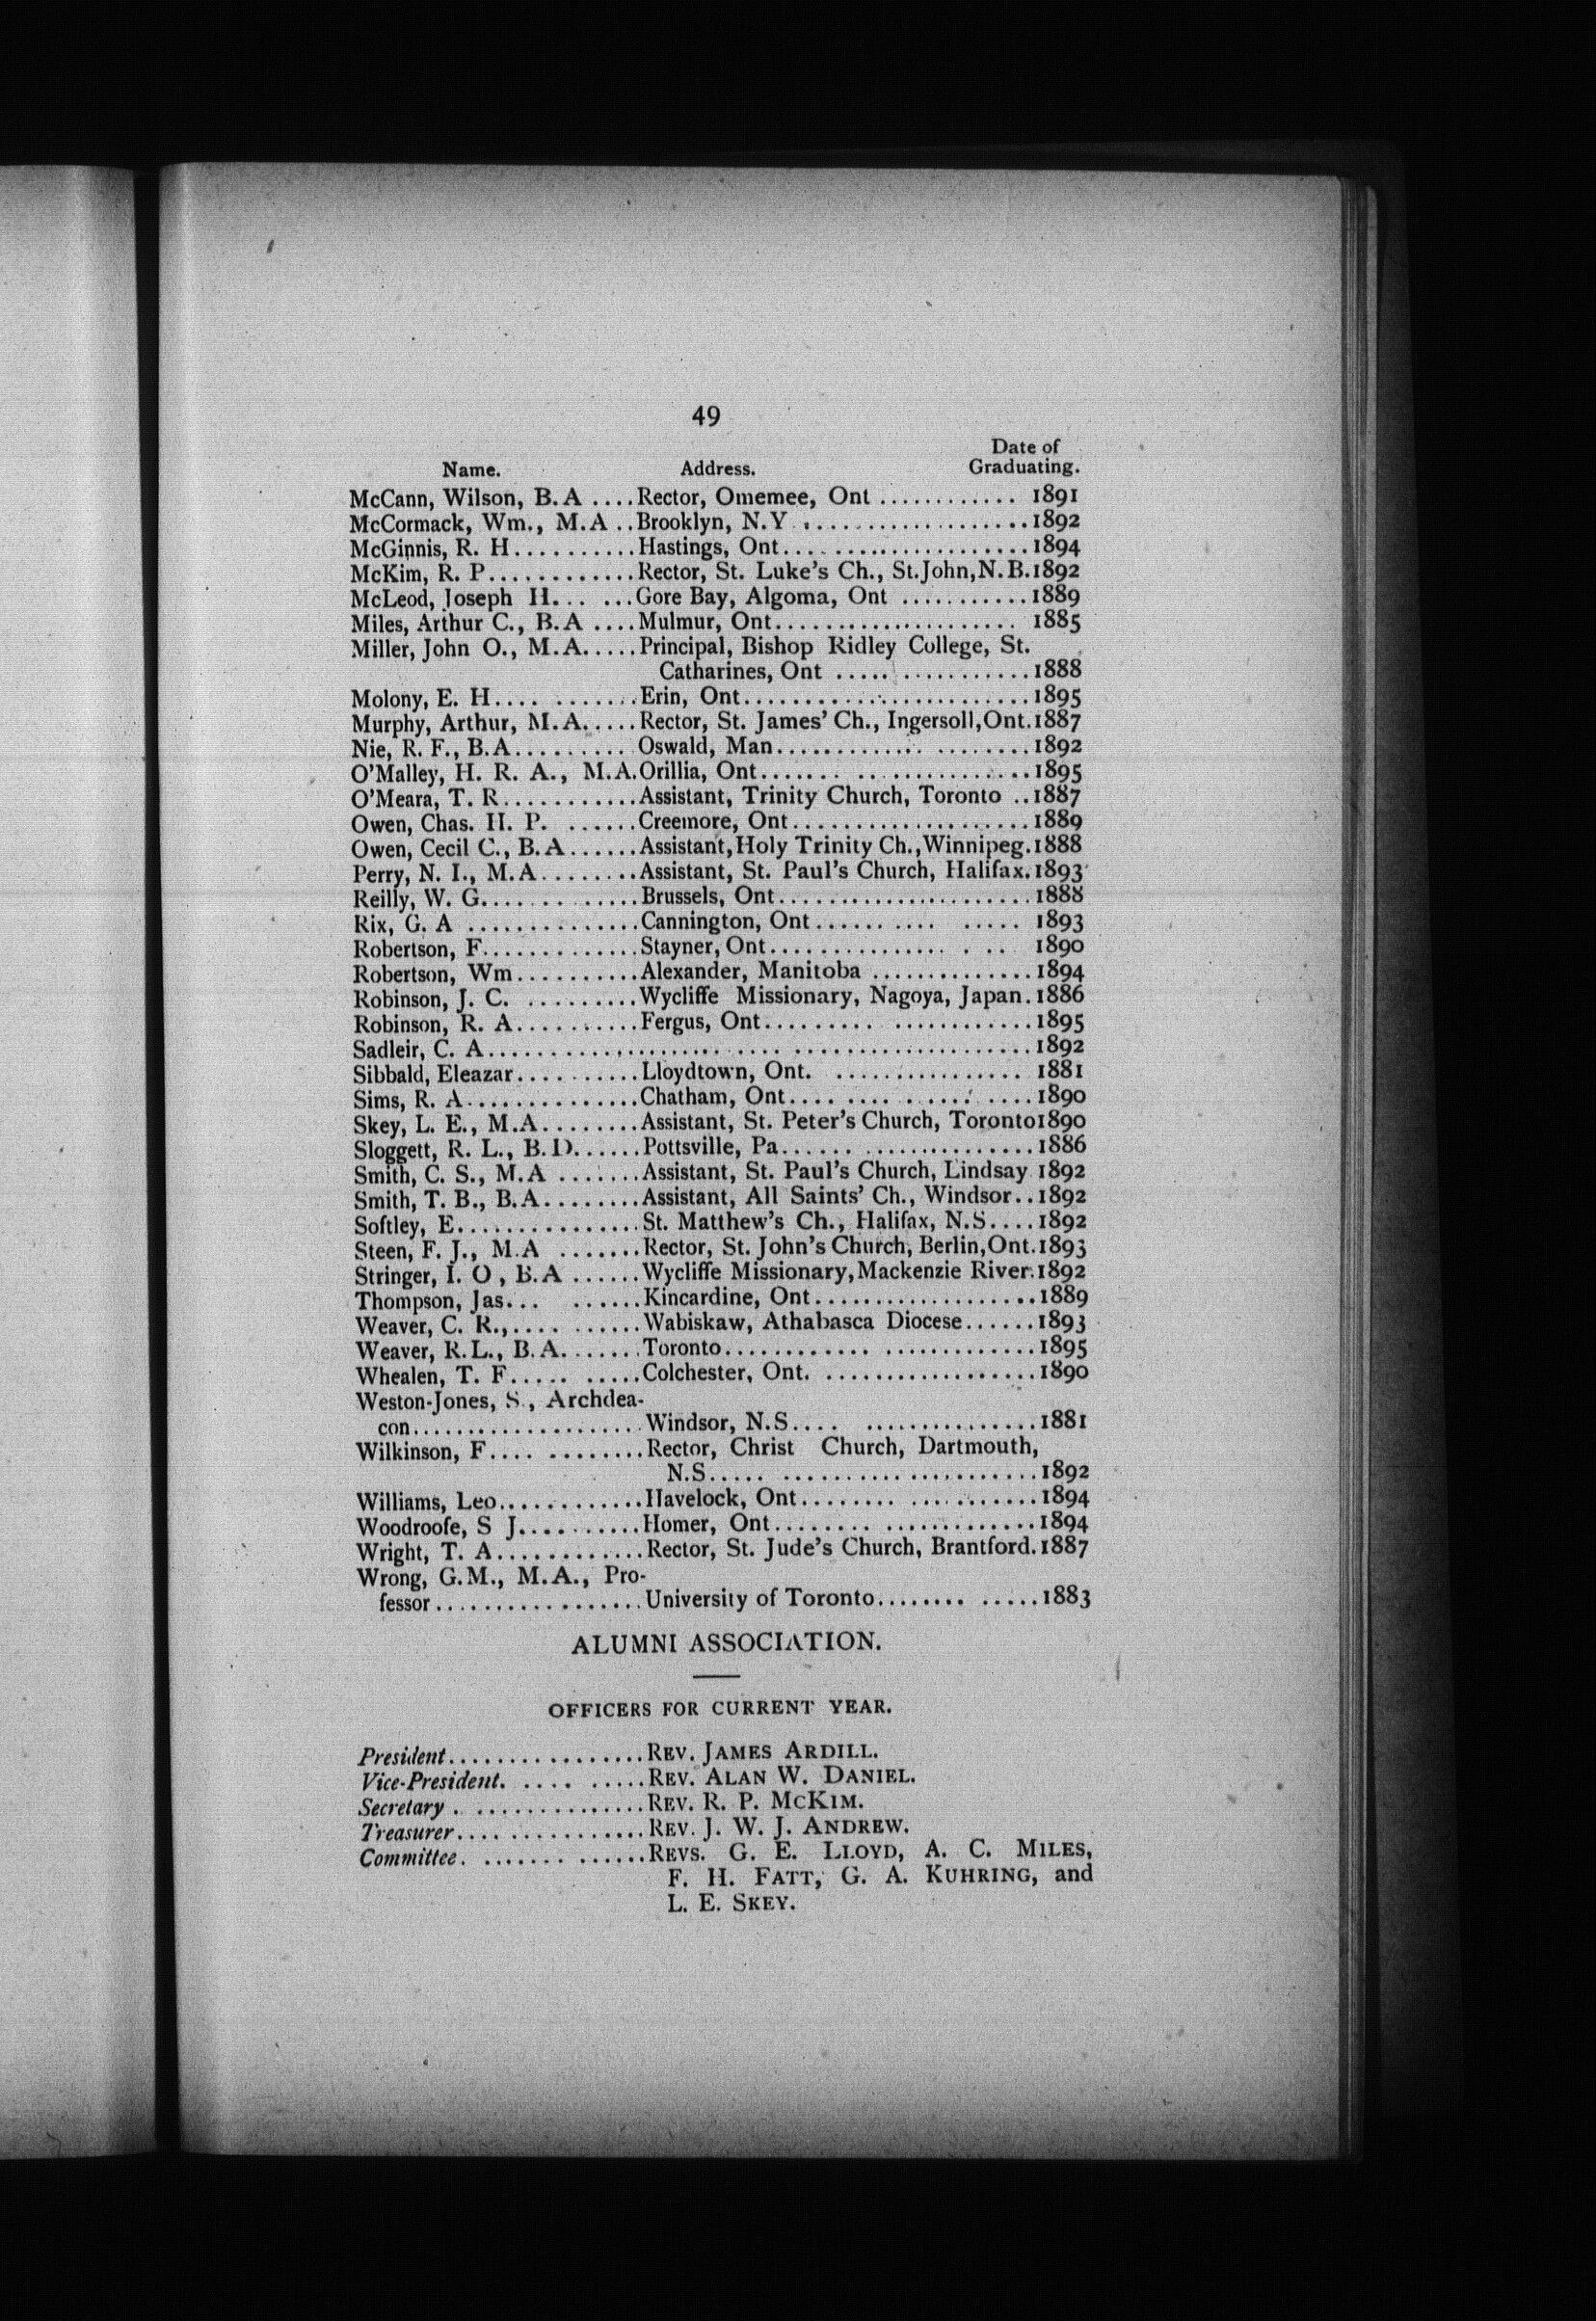 49
Name. Address. Date of Graduating.
McCann, Wilson, B.A .... Rector, Omemee, Ont ............ 1891
McCormack, Wm., M.A .. Brooklyn, N.Y ................... 1892
McGinnis, R. H.......... Hastings, Ont.................... 1894
McKim, R. P............ Rector, St. Luke's Ch., St.John,N.B.1892
McLeod, Joseph H... ... Gore Bay, Algoma, Ont ........... 1889
Miles, Arthur C., B.A .... Mulmur, Ont.................... 1885
Miller, John O., M.A..... Principal, Bishop Ridley College, St.
Catharines, Ont ..... ........... 1888
Molony, E. H.... ....... Erin, Ont....................... 1895
Murphy, Arthur, M.A..... Rector, St. James' Ch., Ingersoll,Ont.1887
Nie, R. F., B.A.......... Oswald, Man............ ........ 1892
O'Malley, H. R. A., M.A. Orillia, Ont....... .............. 1895
O'Meara, T. R........... Assistant, Trinity Church, Toronto ..1887
Owen, Chas. H. P. ...... Creemore, Ont................... 1889
Owen, Cecil C., B.A...... Assistant,Holy Trinity Ch.,Winnipeg.1888
Perry, N. I., M.A........ Assistant, St. Paul's Church, Halifax.1893
Reilly, W. G............. Brussels, Ont..................... 1888
Rix, G. A .............. Cannington, Ont...... .... ..... 1893
Robertson, F............. Stayner, Ont............... . .. 1890
Robertson, Wm.......... Alexander, Manitoba ............. 1894
Robinson, J. C. ......... Wycliffe Missionary, Nagoya, Japan. 1886
Robinson, R. A.......... Fergus, Ont......... ............ 1895
Sadleir, C. A.................... .... ................... 1892
Sibbald, Eleazar.......... Lloydtown, Ont. ................ 1881
Sims, R. A.............. Chatham, Ont.... .... ..... .... 1890
Skey, L. E., M.A........ Assistant, St. Peter's Church, Toronto1890
Sloggett, R. L., B.D...... Pottsville, Pa...... .............. 1886
Smith, C. S., M.A ....... Assistant, St. Paul's Church, Lindsay 1892
Smith, T. B., B.A........ Assistant, All Saints' Ch., Windsor..1892
Softley, E............... St. Matthew's Ch., Halifax, N.S....1892
Steen, F. J., M.A ....... Rector, St. John's Church, Berlin,Ont.1893
Stringer, I. O , B.A ...... Wycliffe Missionary,Mackenzie River.1892
Thompson, Jas... ...... Kincardine, Ont.................. 1889
Weaver, C. R.,.... ...... Wabiskaw, Athabasca Diocese...... 1893
Weaver, R.L., B.A....... Toronto............ ............. 1895
Whealen, T. F..... ..... Colchester, Ont. .................. 1890
Weston-Jones, S., Archdea-
con................... Windsor, N.S.... .............. 1881
Wilkinson, F.... ........ Rector, Christ Church, Dartmouth,
N.S..... ..................... 1892
Williams, Leo............ Havelock, Ont........ .......... 1894
Woodroofe, S J.......... Homer, Ont........ ............. 1894
Wright, T. A............ Rector, St. Jude's Church, Brantford.1887
Wrong, G.M., M.A., Pro-
fessor................. University of Toronto........ ..... 1883
ALUMNI ASSOCIATION.
OFFICERS FOR CURRENT YEAR.
President................ REV. JAMES ARDILL.
Vice-President. .... ..... REV. ALAN W. DANIEL.
Secretary . .............. REV. R. P. MCKIM.
Treasurer.... ........... REV. J. W. J. ANDREW.
Committee. ....... ...... REVS. G. E. LLOYD, A. C. MILES,
F. H. FATT, G. A. KUHRING, and
L. E. SKEY.